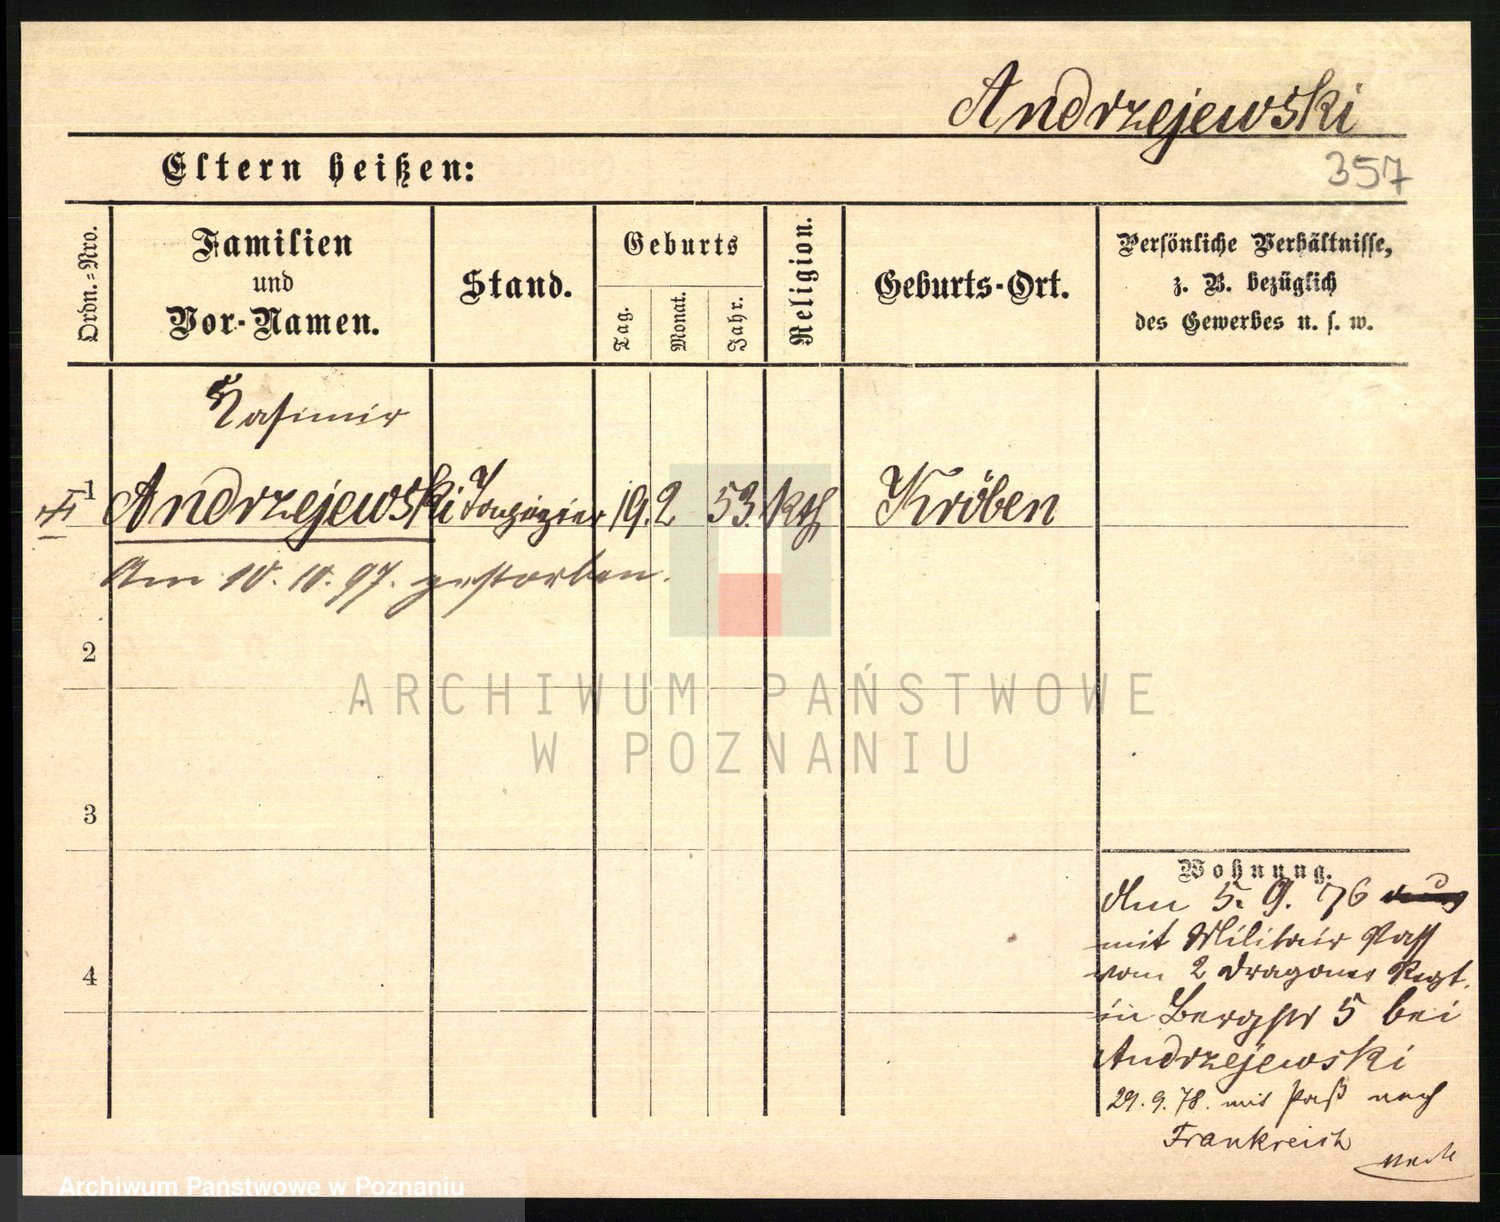 Andrzejewski
357
Eltern heißen:
Ordn.=Nro.
Familien
und
Vor-Namen.
Stand.
Geburts
Tag.
Monat.
Jahr.
Religion.
Geburts-Ort.
Persönliche Verhältnisse,
z. B. bezüglich
des Gewerbes u. s. w.
Kasimir
1 Andrzejewski 19. 2 53. kth Kröben
Am 10. 10. 97. gestorben.
2
3
4
Wohnung.
Am 5. 9. 76
mit Militair Pass
vom 2 Dragoner Regt.
in Bergstr 5 bei
Andrzejewski
29. 9. 78. mit Paß nach
Frankreich
ARCHIWUM PAŃSTWOWE
W POZNANIU
Archiwum Państwowe w Poznaniu